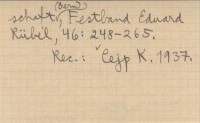 (Bern)
schaft, Festband Eduard
Rübel, 46: 248-265.
Rec.: Cejp K. 1937.